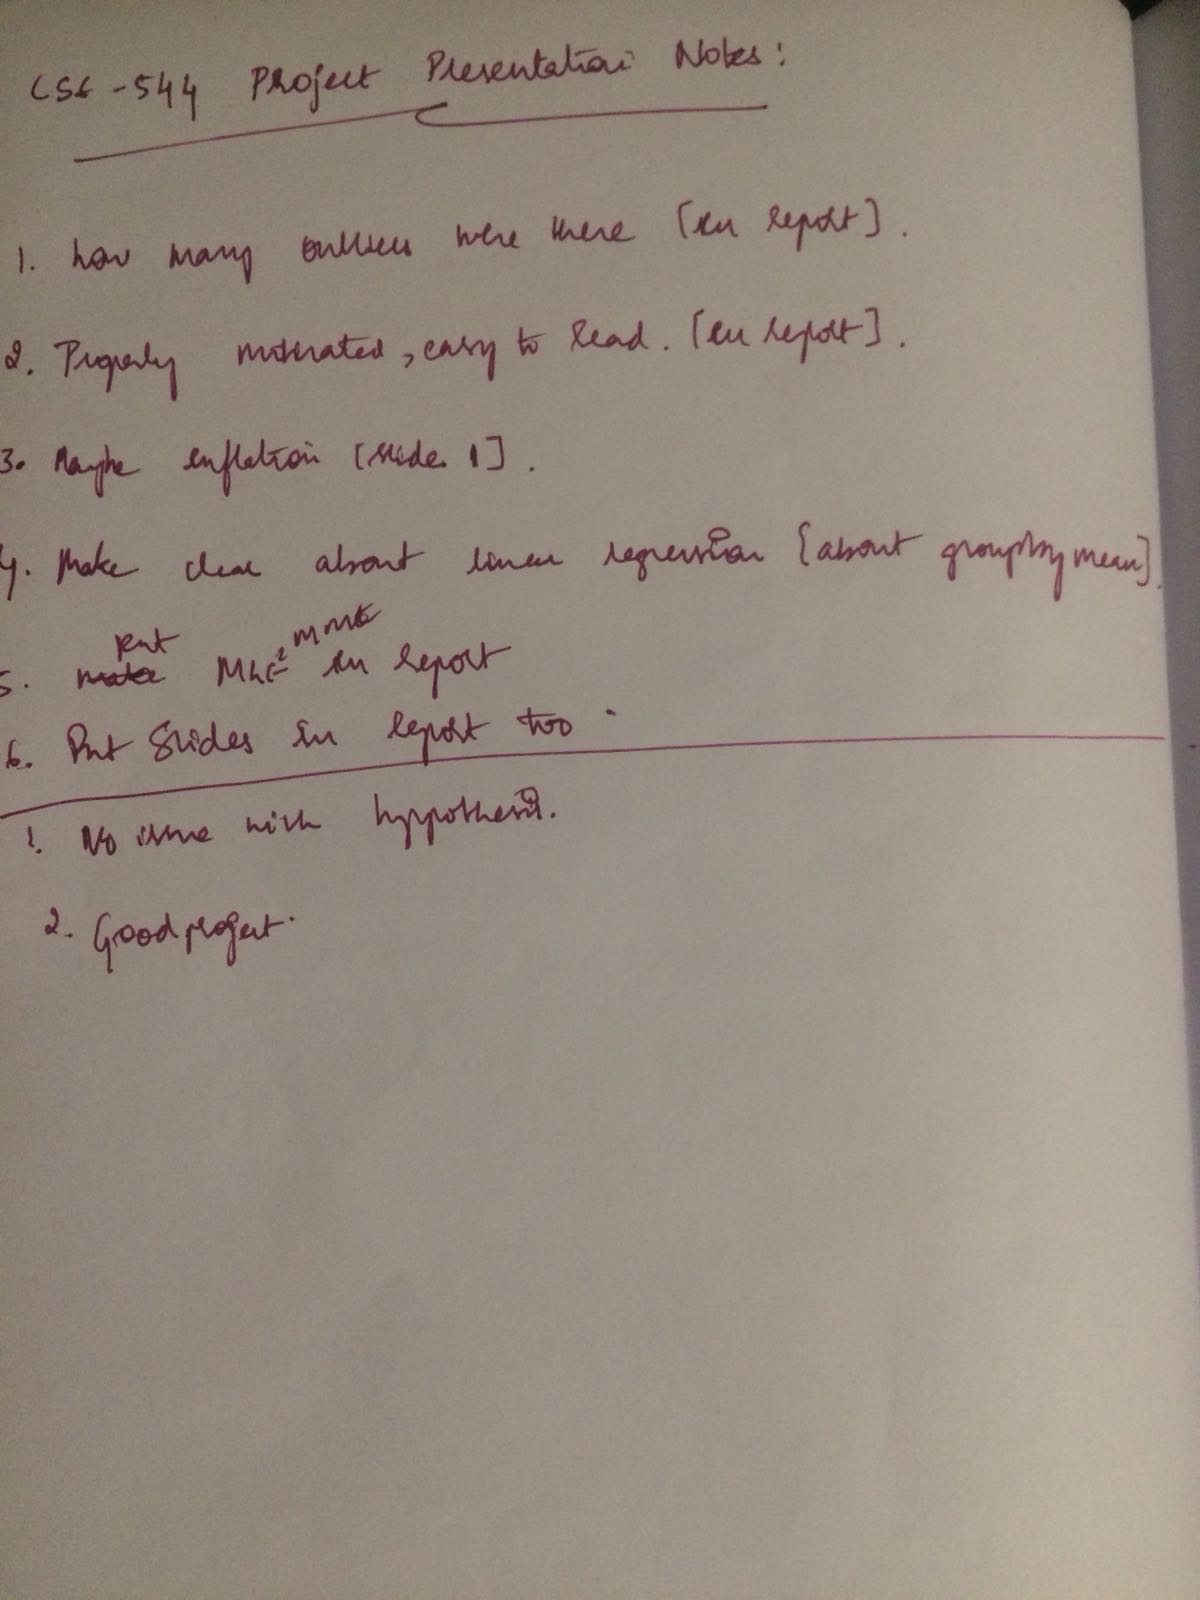 CSE-544 Project Presentation Notes:
1. how many outliers were there [in report].
2. Properly motivated, easy to read. [in report].
3. Maybe inflation [slide 1].
4. Make clear about linear regression [about groupby mean]
put MME
5. make MLE in report
6. Put Slides in report too.
1. No issue with hypothesis.
2. Good project.